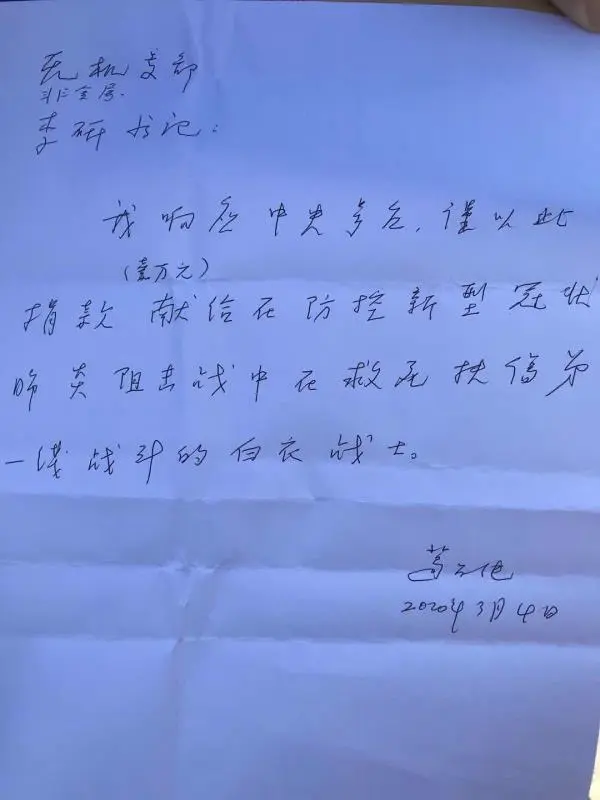 无机支部
非金属
李研书记：
我响应中央号召，谨以此
（壹万元）
捐款献给在防控新型冠状
肺炎阻击战中在救死扶伤第
一线战斗的白衣战士。
2020年3月4日